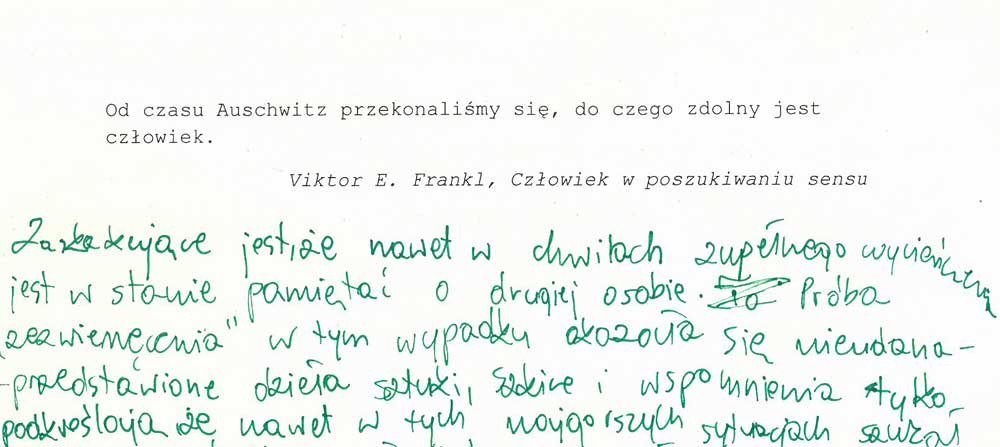 Od czasu Auschwitz przekonaliśmy się, do czego zdolny jest
człowiek.
Viktor E. Frankl, Człowiek w poszukiwaniu sensu
Zaskakujące jest, że nawet w chwilach zupełnego wycieńczenia
jest w stanie pamiętać o drugiej osobie. Próba
„zezwierzęcenia" w tym wypadku okazała się nieudana -
- przedstawione dzieła sztuki, szkice i wspomnienia tylko
podkreślają, że nawet w tych najgorszych sytuacjach